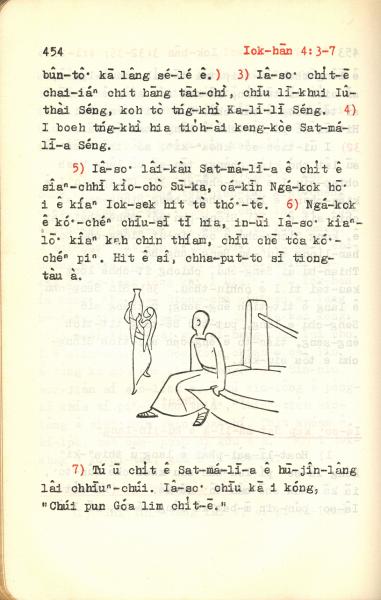 454 Iok-hān 4:3-7
bûn-tô͘ kā lâng sé-lé ê.) 3) Iâ-so͘ chi̍t-ē
chai-iáⁿ chit hāng tāi-chì, chīu lī-khui Iû-
thài Séng, koh tò tńg-khì Ka-lī-lī Séng. 4)
I boeh tńg-khì hia tio̍h-ài keng-kòe Sat-má-
lī-a Séng.
5) Iâ-so͘ lâi-kàu Sat-má-lī-a ê chi̍t ê
siâⁿ-chhī kìo-chò Sū-ka, óa-kīn Ngá-kok hō͘
i ê kíaⁿ Iok-sek hit tè thó͘-tē. 6) Ngá-kok
ê kó͘-chéⁿ chīu-sī tī hia, in-ūi Iâ-so͘ kîaⁿ-
lō͘ kîaⁿ kah chin thíam, chīu chē tòa kó͘-
chéⁿ piⁿ. Hit ê sî, chha-put-to sī tiong-
tàu à.
7) Tú ū chi̍t ê Sat-má-lī-a ê hū-jîn-lâng
lâi chhīuⁿ-chúi. Iâ-so͘ chīu kā i kóng,
"Chúi pun Góa lim chi̍t-ē."